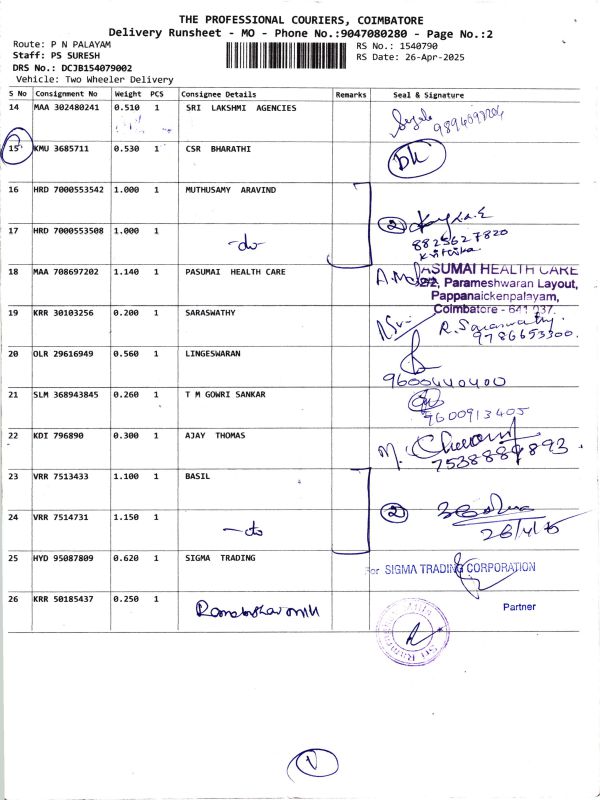 THE PROFESSIONAL COURIERS, COIMBATORE
Delivery Runsheet - MO - Phone No.:9047080280 - Page No.:2
Route: P N PALAYAM
RS No.: 1540790
Staff: PS SURESH
RS Date: 26-Apr-2025
DRS No.: DCJB154079002
Vehicle: Two Wheeler Delivery
S No Consignment No Weight PCS Consignee Details Remarks Seal & Signature
14 MAA 302480241 0.510 1 SRI LAKSHMI AGENCIES
15 KMU 3685711 0.530 1 CSR BHARATHI
16 HRD 7000553542 1.000 1 MUTHUSAMY ARAVIND
2
8825627820
17 HRD 7000553508 1.000 1 -do-
Krithika
18 MAA 708697202 1.140 1 PASUMAI HEALTH CARE
ASUMAI HEALTH CARE
2/2, Parameshwaran Layout,
Pappanaickenpalayam,
Coimbatore - 641 037.
19 KRR 30103256 0.200 1 SARASWATHY
R. Saraswathy.
9786653300.
20 OLR 29616949 0.560 1 LINGESWARAN
9600440400
21 SLM 368943845 0.260 1 T M GOWRI SANKAR
9600913405
22 KDI 796890 0.300 1 AJAY THOMAS
7538889893
23 VRR 7513433 1.100 1 BASIL
2
24 VRR 7514731 1.150 1 -do
26/4/25
25 HYD 95087809 0.620 1 SIGMA TRADING
For SIGMA TRADING CORPORATION
Partner
26 KRR 50185437 0.250 1